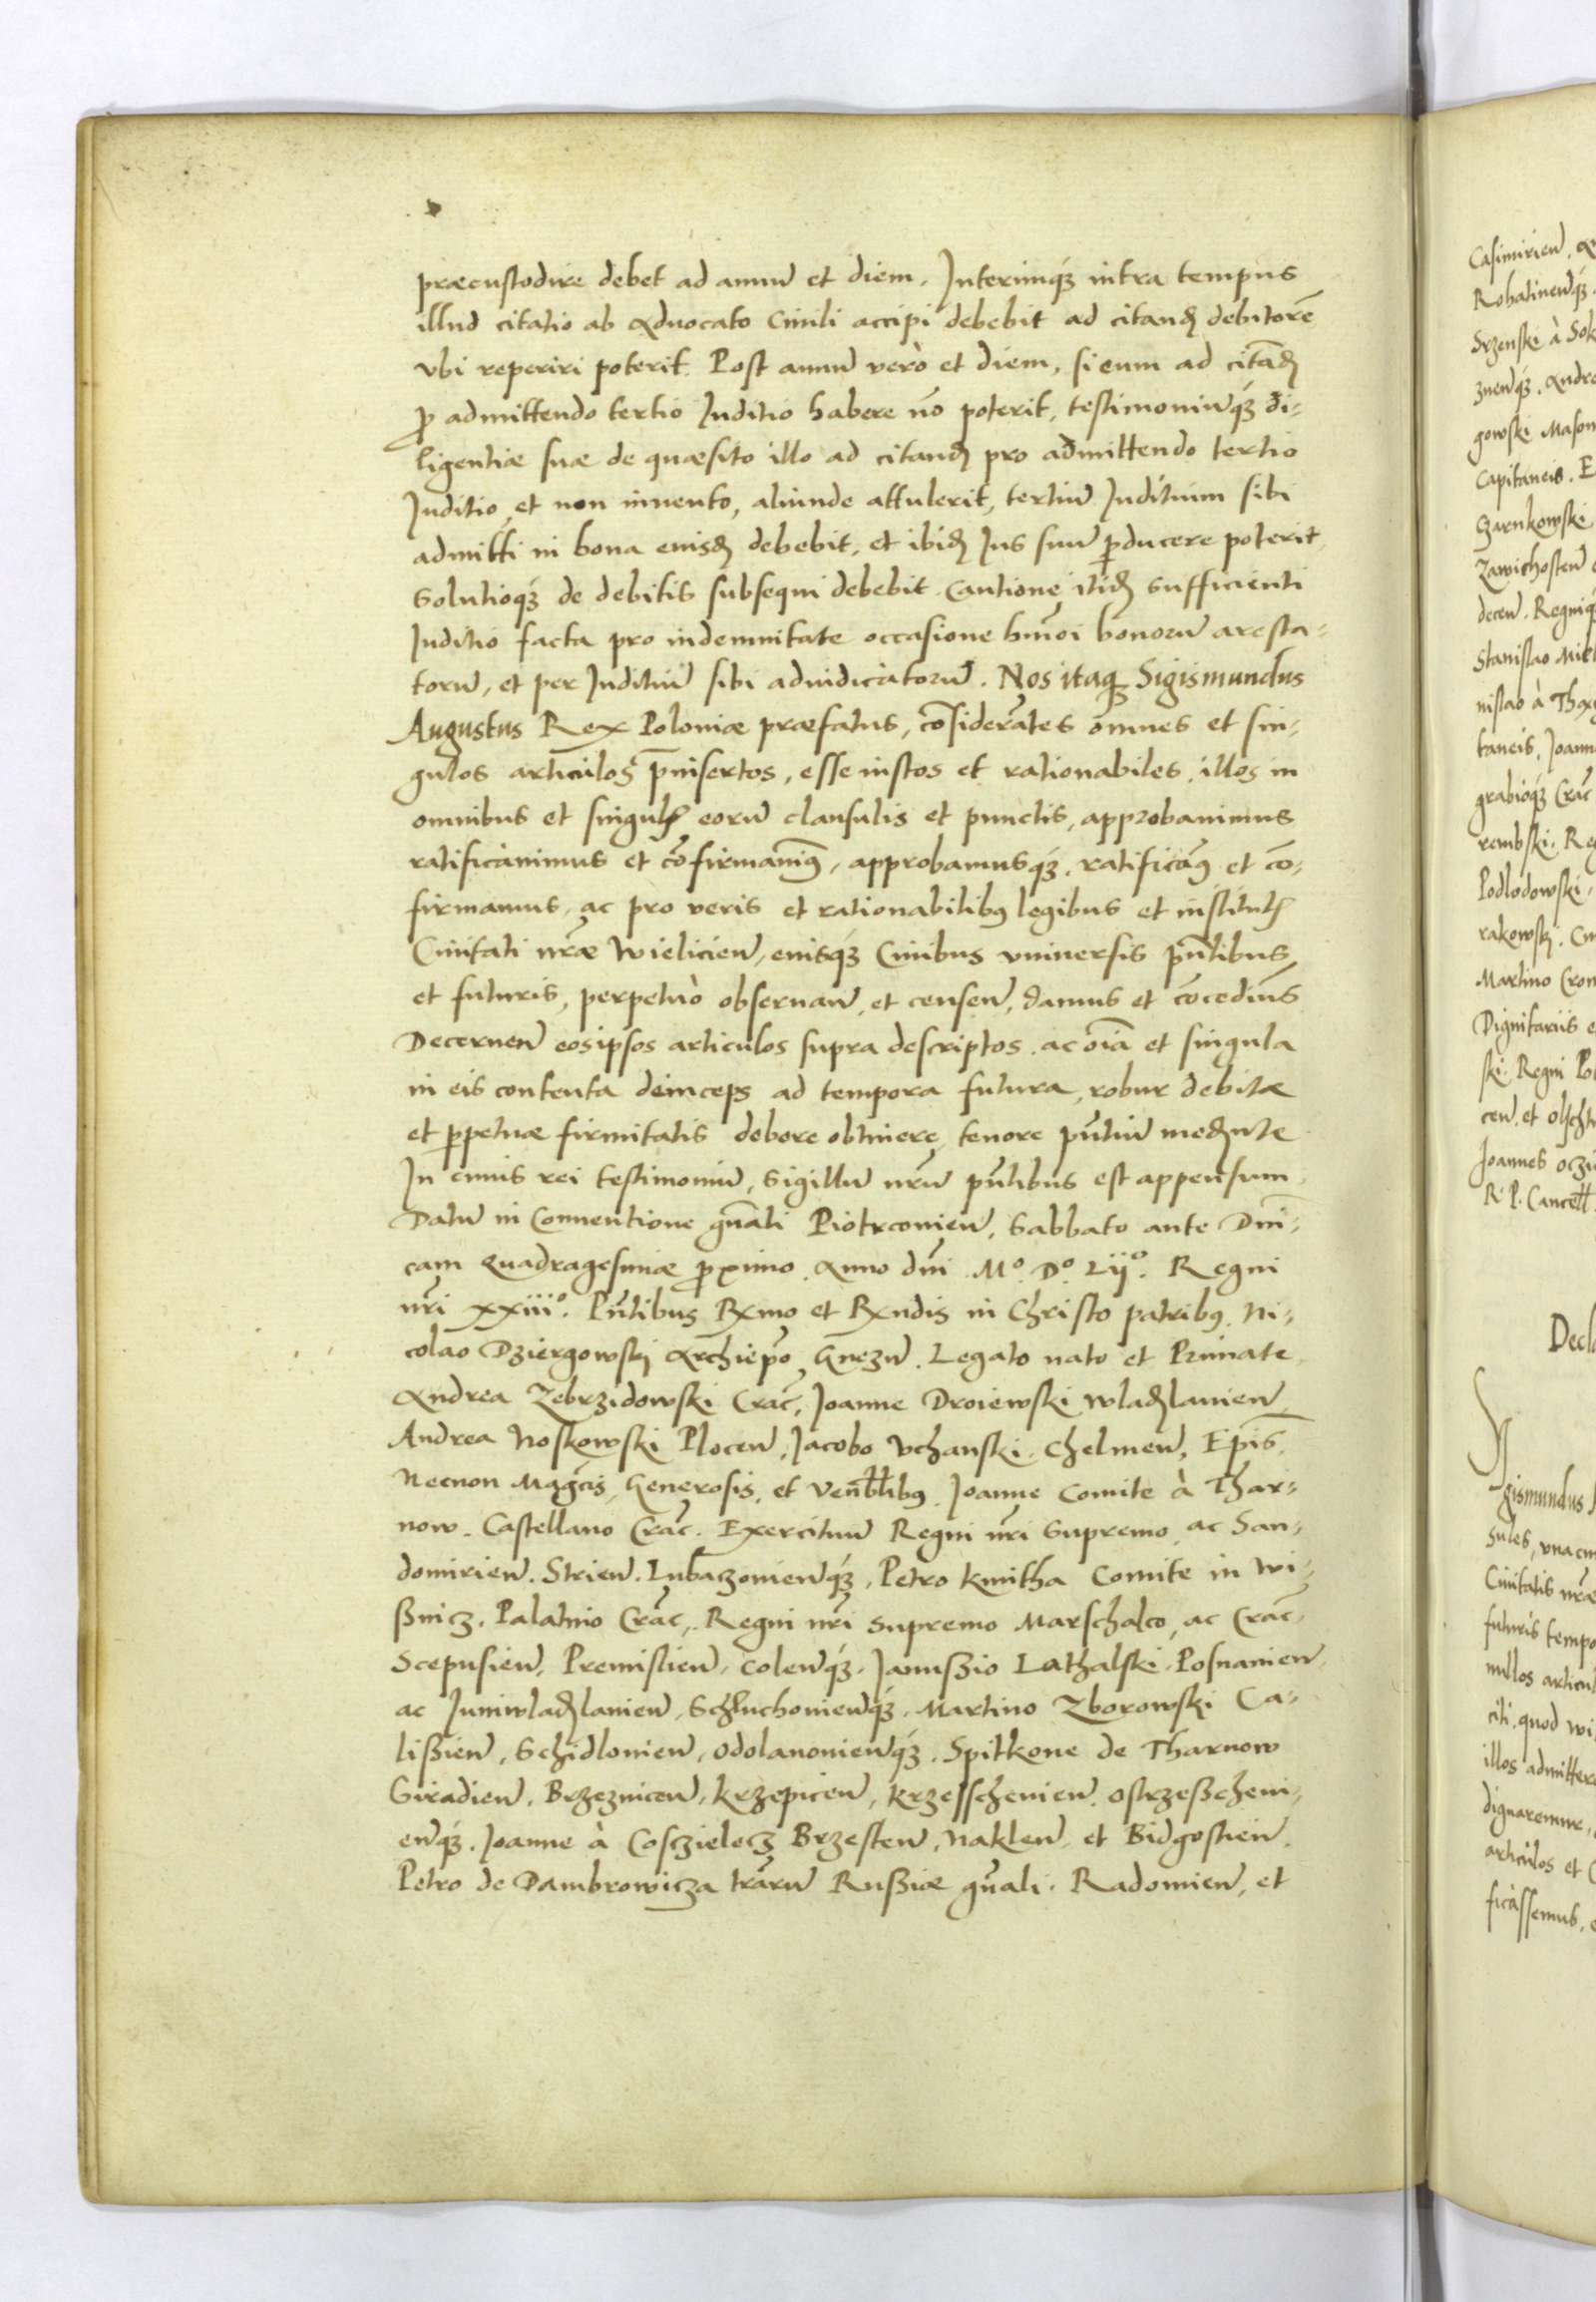 præcustodire debet ad annū et diem. Interimq́ꝫ intra tempus
illud citatio ab Aduocato Ciuili accipi debebit ad citandꝫ debitorē
vbi reperiri poterit. Post annū verò et diem, si eum ad citādꝫ
ꝓ admittendo tertio Juditio habere nō poterit, testimoniūq́ꝫ di-
ligentiæ suæ de quæsito illo ad citandꝫ pro admittendo tertio
Juditio, et non inuento, aliunde attulerit, tertiū Juditium sibi
admitti in bona eiusdꝫ debebit, et ibidꝫ Jus suū ꝑducere poterit,
Solutioq́ꝫ de debitis subsequi debebit. Cautione itidꝫ sufficienti
Juditio facta pro indemnitate occasione hm̄oi bonorū aresta-
torū, et per Juditiū sibi adiudicàtorū. Nos itaqꝫ Sigismundus
Augustus Rex Poloniæ præfatus, cōsiderātes om̄nes et sin-
gulos articulos p̄insertos, esse iustos et rationabiles, illos in
omnibus et singulꝫ eorū clausulis et punctis, approbauimus
ratificàuimus et cōfirmauimꝰ, approbamusq́ꝫ, ratificāmꝰ et cō-
firmamus, ac pro veris et rationabilibꝰ legibus et institutꝫ
Ciuitati nr̄æ Wielicień, eiusq́ꝫ Ciuibus vniuersis pn̄tibus
et futuris, perpetuò obseruań, et censeń, damus et cōcedim̄s
Decerneń eosipsos articulos supra descriptos, ac oīa et singula
in eis contenta deinceps ad tempora futura, robur debitæ
et ꝑpetuæ firmitatis debere obtinere, tenore pn̄tiū medꝫnte
In cuius rei testimoniū, Sigillū nr̄ū pn̄tibus est appensum.
Datū in Conuentione gn̄ali Piotrconień, Sabbato ante Dni-
cam Quadragesimæ ꝓximo. Anno dn̄i M.º D.º Lij.º Regni
nr̄i xxiii.º Pn̄tibus Rx̄mo et Rx̄ndis in Christo patribꝰ, Ni-
colao Dziergowski Archiep̄o Gnezń. Legato nato et Primate
Andrea Zebrzidowski Crāc, Joanne Droiewski Wladꝫlauień
Andrea Noskowski Ploceń, Jacobo Vchanski Chelmeń, Ep̄is.
Necnon Mag̃cis, Generosis, et Venblibꝰ. Joanne Comite à Thar-
now. Castellano Crāc. Exercituū Regni nr̄i Supremo, ac San-
domirień. Strień. Lubaczouieńq́ꝫ, Petro Kmitha Comite in Wi-
ßnicz. Palatino Crāc, Regni nr̄i supremo Marschalco, ac Crāc
Scepusień, Premislień, Coleńq́ꝫ. Janußio Lathalski Posnanień
ac Juniwladꝫlauień, Schluchouieńq́ꝫ. Martino Zborowski Ca-
lißień, Schidlouień, Odolanouieńq́ꝫ. Spitkone de Tharnow
Siradień. Brzezniceń, Krzepiceń, Krzesschenień. Ostrzeßcheni-
eńq́ꝫ. Joanne à Cosczielecz Brzesteń, Nakleń et Bidgostień.
Petro de Dambrowicza trārū Rußiæ gn̄ali. Radomień, et
Casimirień,
gowski
Capitaneis.
Czarnkowski
Zawichosteń
Stanislao
taneis, Joann
rembski. Re
Podlodowski
Martino Crom
Dignitariis
ski. Regni Po
Joannes
R. P. Cancell.
Decla
gismundus
sules, vna cu
Ciuitatis nr̄æ
futuris tempo
nullos articul
citi, quod Wi
illos admitter
dignaremur,
articulos et
ficàssemus,